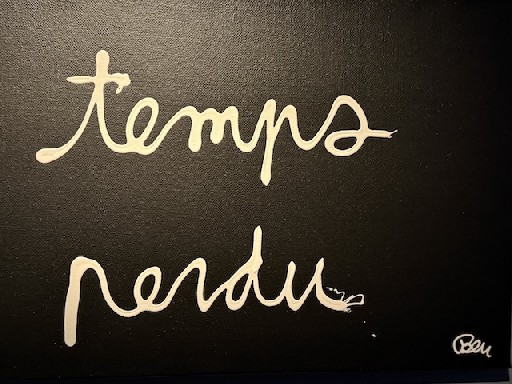 temps
perdu
Ben